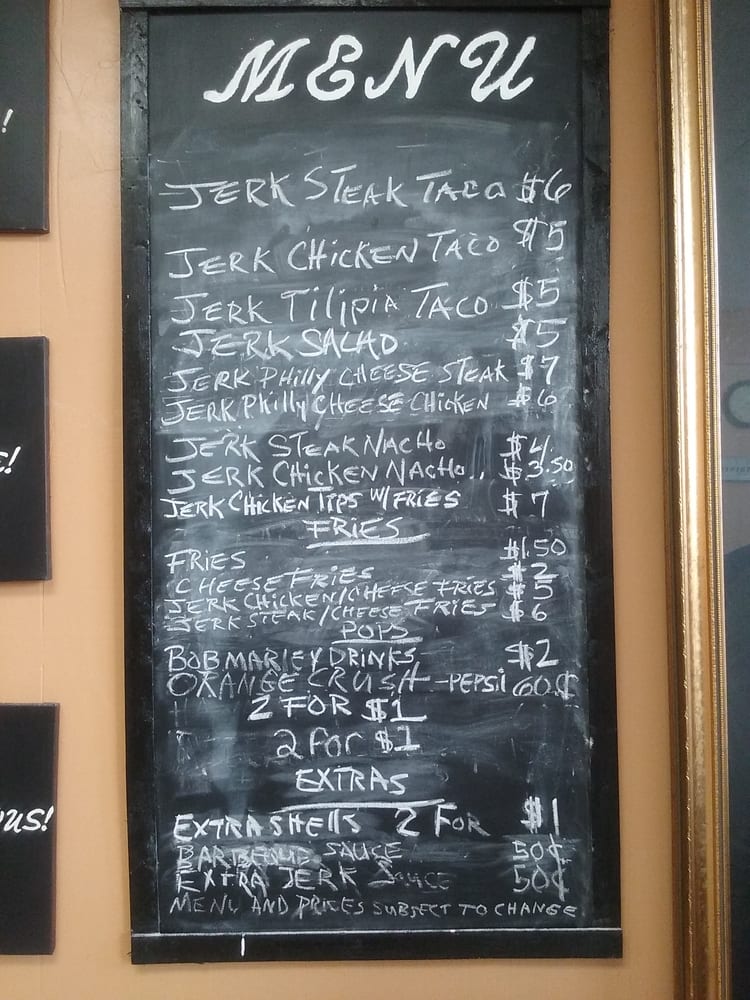 MENU
JERK STEAK TACO $6
JERK CHICKEN TACO $5
JERK TiliPiA TACO $5
JERK SALAD $5
JERK PHilly CHEESE STEAK $7
JERK PHilly CHEESE CHICKEN $6
JERK STEAK NACHO $4
JERK CHICKEN NACHO.. $3.50
JERK CHICKEN TIPS W/ FRIES $7
FRIES
FRIES $1.50
CHEESE FRIES $2
JERK CHICKEN/CHEESE FRIES $5
JERK STEAK/CHEESE FRIES $6
POPS
BOB MARLEY DRINKS $2
ORANGE CRUSH -PEPSI 60¢
2 FOR $1
2 for $1
EXTRAS
EXTRA SHEllS 2 FOR $1
BARBEQUE SAUCE 50¢
EXTRA JERK SAUCE 50¢
MENU AND PRICES SUBJECT TO CHANGE
!
!
US!